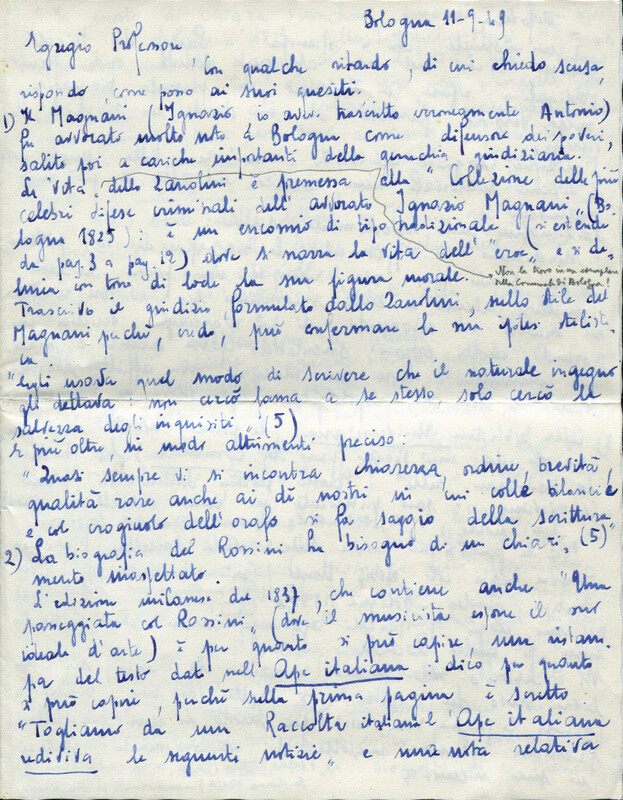 Bologna 11-9-49
Egregio Professore
con qualche ritardo, di cui chiedo scusa,
rispondo come posso ai suoi quesiti.
1) Il Magnani (Ignazio, io avevo trascritto erroneamente Antonio)
fu avvocato molto noto a Bologna come difensore dei poveri,
salito poi a cariche importanti della gerarchia giudiziaria.
La Vita dello Zanolini è premessa alla "Collezione delle più
celebri difese criminali dell'avvocato Ignazio Magnani" (Bo-
logna 1825): è un encomio di tipo tradizionale (si estende
da pag. 3 a pag. 12) dove si narra la vita dell'"eroe" e si de-
linea con tono di lode la sua figura morale.
Non la trovo in un esemplare
della Comunale di Bologna!
Trascrivo il giudizio, formulato dallo Zanolini, sullo stile del
Magnani perché, credo, può confermare la sua ipotesi stilisti-
ca
"Egli usava quel modo di scrivere che il naturale ingegno
gli dettava: non cercò fama a se stesso, solo cercò la
salvezza degli inquisiti" (5)
E più oltre, in modo altrimenti preciso:
"Quasi sempre vi si incontra chiarezza, ordine, brevità,
qualità rare anche ai dì nostri in cui colle bilancie
e col crogiuolo dell'orafo si fa saggio della scrittura" (5)
2) La biografia del Rossini ha bisogno di un chiari-
mento inaspettato
L'edizione milanese del 1837, che contiene anche "Una
passeggiata col Rossini" (dove il musicista espone il suo
ideale d'arte) è per quanto si può capire, una ristam-
pa del testo dato nell'Ape italiana: dico per quanto
si può capire, perché nella prima pagina è scritto
"Togliamo da un Raccolta italiana l'Ape italiana
rediviva le seguenti notizie" e una nota relativa